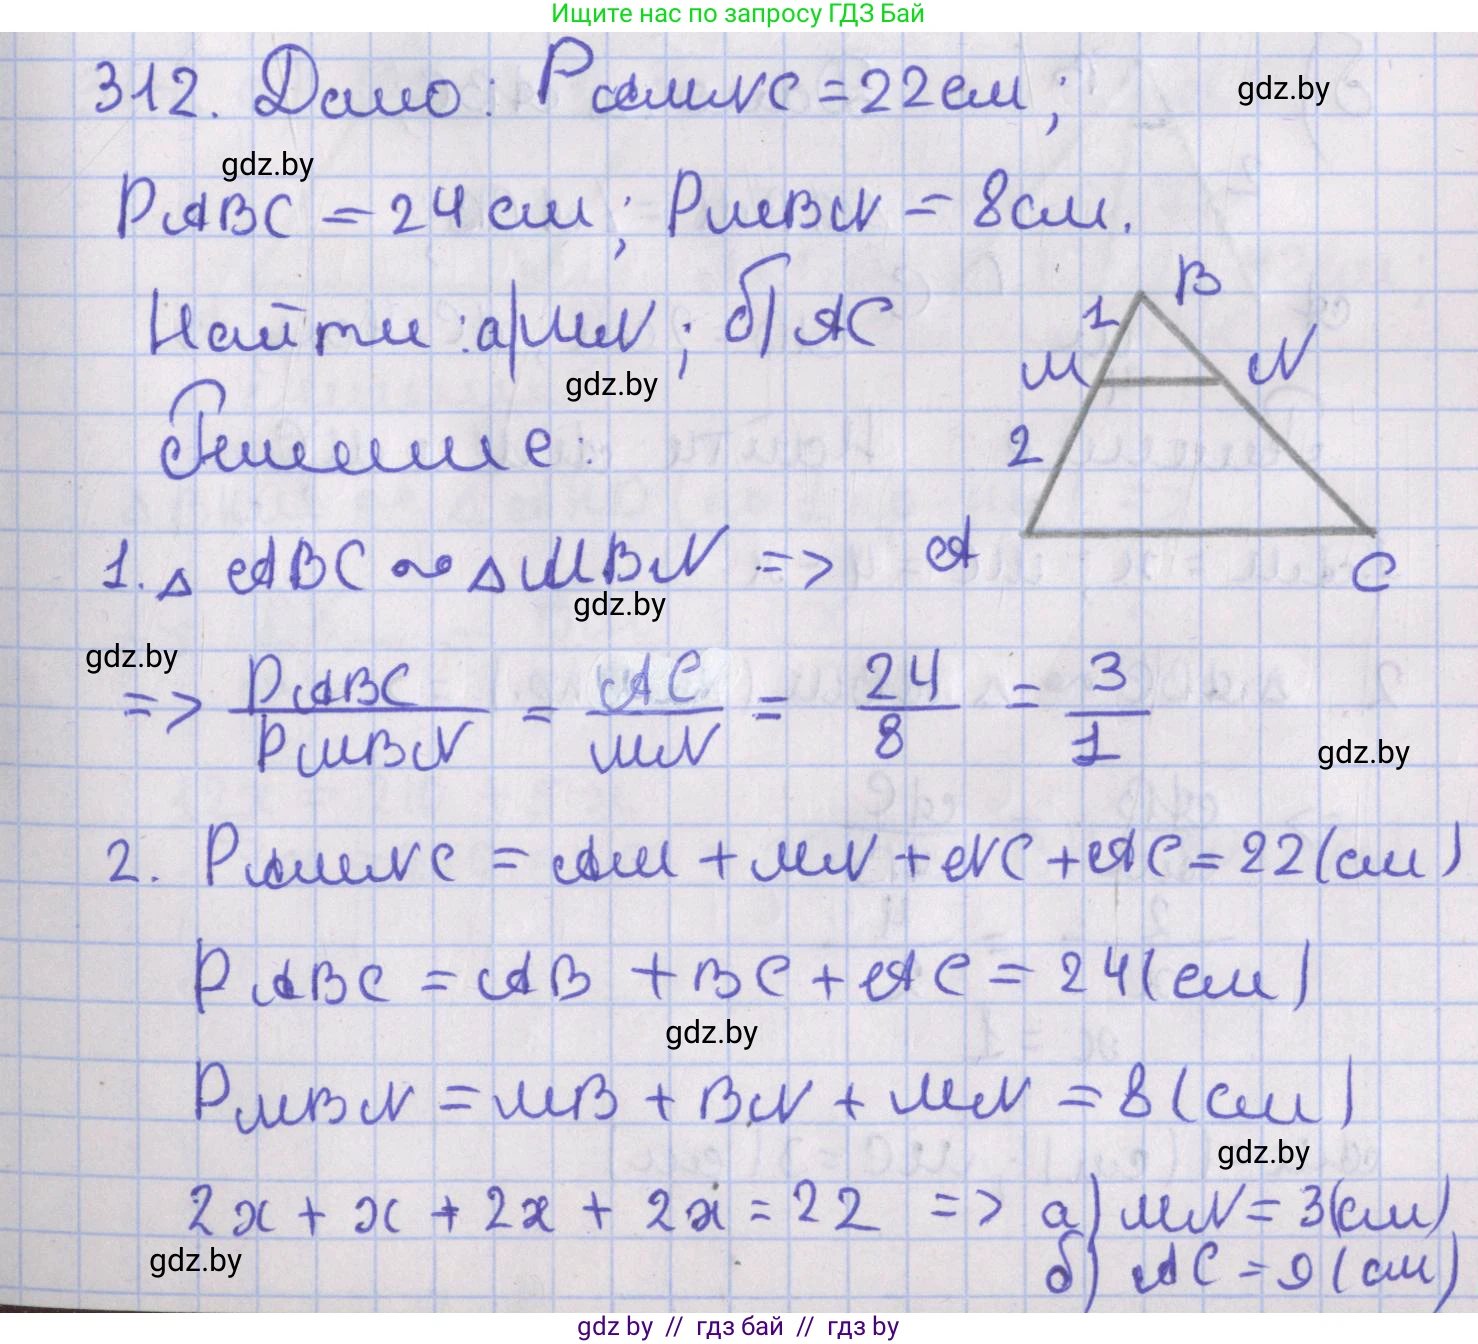 Ищите нас по запросу ГДЗ Бай
312. Дано: PAMNC = 22 см;
gdz.by
gdz.by
PABC = 24 см; PMBN = 8 см.
Найти: а) MN; б) AC
gdz.by
B
1
M
N
2
A
C
Решение:
1. △ ABC ~ △ MBN =>
gdz.by
gdz.by
=> PABC/PMBN = AC/MN = 24/8 = 3/1
gdz.by
2. PAMNC = AM + MN + NC + AC = 22 (см)
PABC = AB + BC + AC = 24 (см)
gdz.by
PMBN = MB + BN + MN = 8 (см)
gdz.by
2x + x + 2x + 2x = 22 => а) MN = 3 (см)
gdz.by
б) AC = 9 (см)
gdz by // гдз бай // гдз by